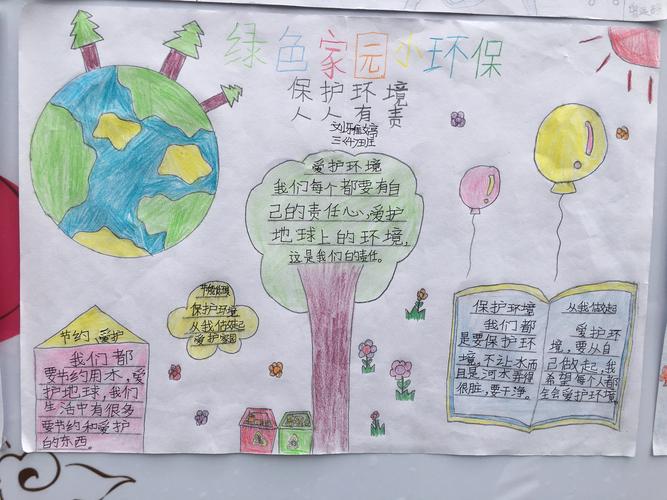 绿色家园小环保
保护环境
人人有责
爱护环境
我们每个都要有自
己的责任心,爱护
地球上的环境,
这是我们的责任。
保护环境
从我做起
爱护家园
节约、爱护
我们都
要节约用水,爱
护地球,我们
生活中有很多
要节约和爱护
的东西。
保护环境
我们都
是要保护环
境,不让水而
且是河水弄得
很脏,要干净。
从我做起
爱护环
境,要从自
己做起,我
希望每个人都
会爱护环境